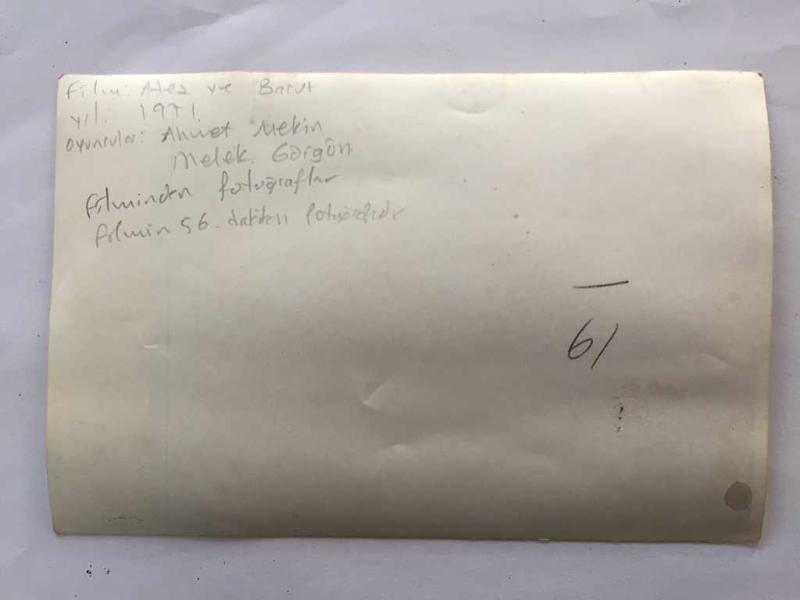 Film: Ateş ve Barut
yıl: 1971
oyuncular: Ahmet Mekin
Melek Görgün
filminden fotoğraflar
filmin 56. dakikası fotoğrafıdır
61